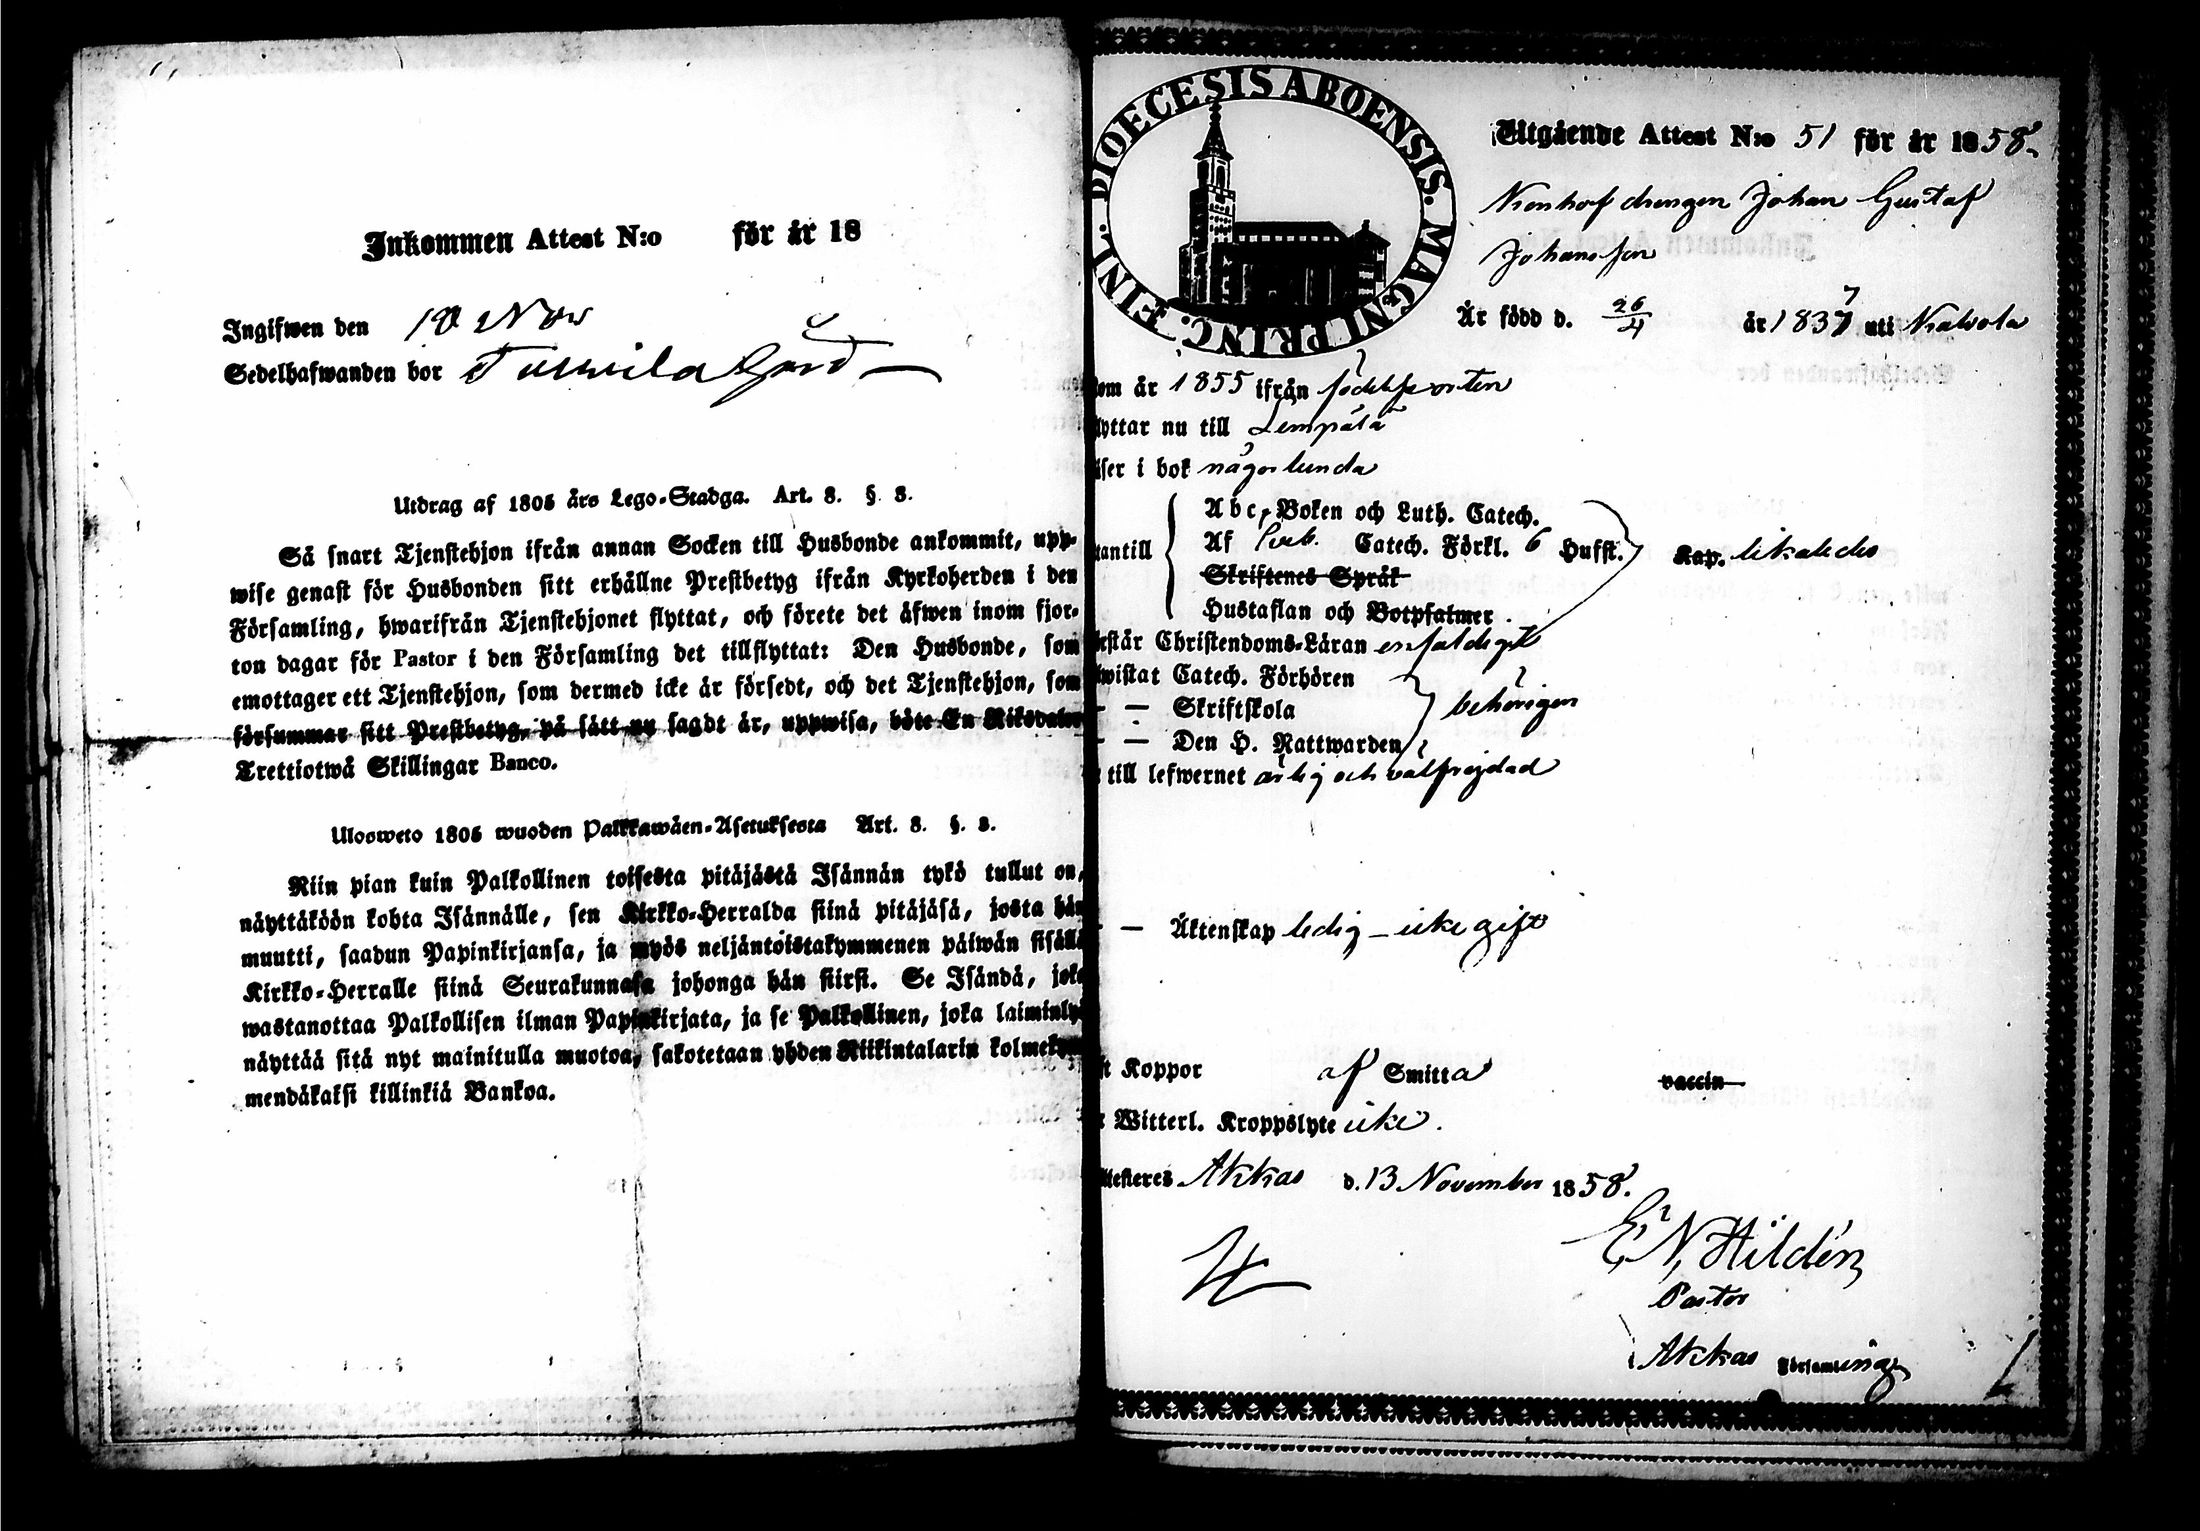 Inkommen Attest N:o för år 18
Ingifwen den 18 Nov
Sedelhafwanden bor Gård
Utdrag af 1805 års Lego-Stadga. Art. 8. §. 3.
Så snart Tjenstehjon ifrån annan Socken till Husbonde ankommit, upp-
wise genast för Husbonden sitt erhållne Prestbetyg ifrån Kyrkoherden i den
Församling, hwarifrån Tjenstehjonet flyttat, och förete det äfwen inom fjor-
ton dagar för Pastor i den Församling det tillflyttat: Den Husbonde, som
emottager ett Tjenstehjon, som dermed icke är försedt, och det Tjenstehjon, som
försummar sitt Prestbetyg, på sätt nu sagdt är, uppwisa, böte En Riksdaler
Trettiotwå Skillingar Banco.
Ulosweto 1805 wuoden Palkkawäen-Asetuksesta Art. 8. §. 3.
Niin pian kuin Palkollinen toisesta pitäjästä Isännän tykö tullut on,
näyttäköön kohta Isännälle, sen Kirkko-Herralda siinä pitäjäsä, josta hän
muutti, saadun Papinkirjansa, ja myös neljäntoistakymmenen päiwän sisällä
Kirkko-Herralle siinä Seurakunnasa johonga hän siirsi. Se Isändä, joka
wastanottaa Palkollisen ilman Papinkirjata, ja se Palkollinen, joka laiminlyö
näyttää sitä nyt mainitulla muotoa, sakotetaan yhden Riikintalarin kolmekym-
mendäkaksi killinkiä Bankoa.
DIOECESIS ABOENSIS. MAGNI PRINC. FINL.
Utgående Attest N:o 51 för år 1858.
drengen Johan Gustaf
Johansson
Är född d. 26/4 år 1837 uti Kalvola
kom år 1855 ifrån födelseorten
flyttar nu till Lempälä
läser i bok någorlunda
utantill
Abc-Boken och Luth. Catech.
Af Sveb. Catech. Förkl. 6 Hufst. Kap. likaledes
Skriftenes Språk
Hustaflan och Botpsalmer.
förstår Christendoms-Läran enfaldigt
bewistat Catech. Förhören
— — Skriftskola behörigen
— — Den H. Nattwarden
är till lefwernet ärlig och välfrejdad
— — Äktenskap ledig – icke gift
haft Koppor af Smitta vaccin
har Witterl. Kroppslyte icke.
Attesteres Akkas d. 13 November 1858.
E. N. Hildén
Pastor
Akkas Församling